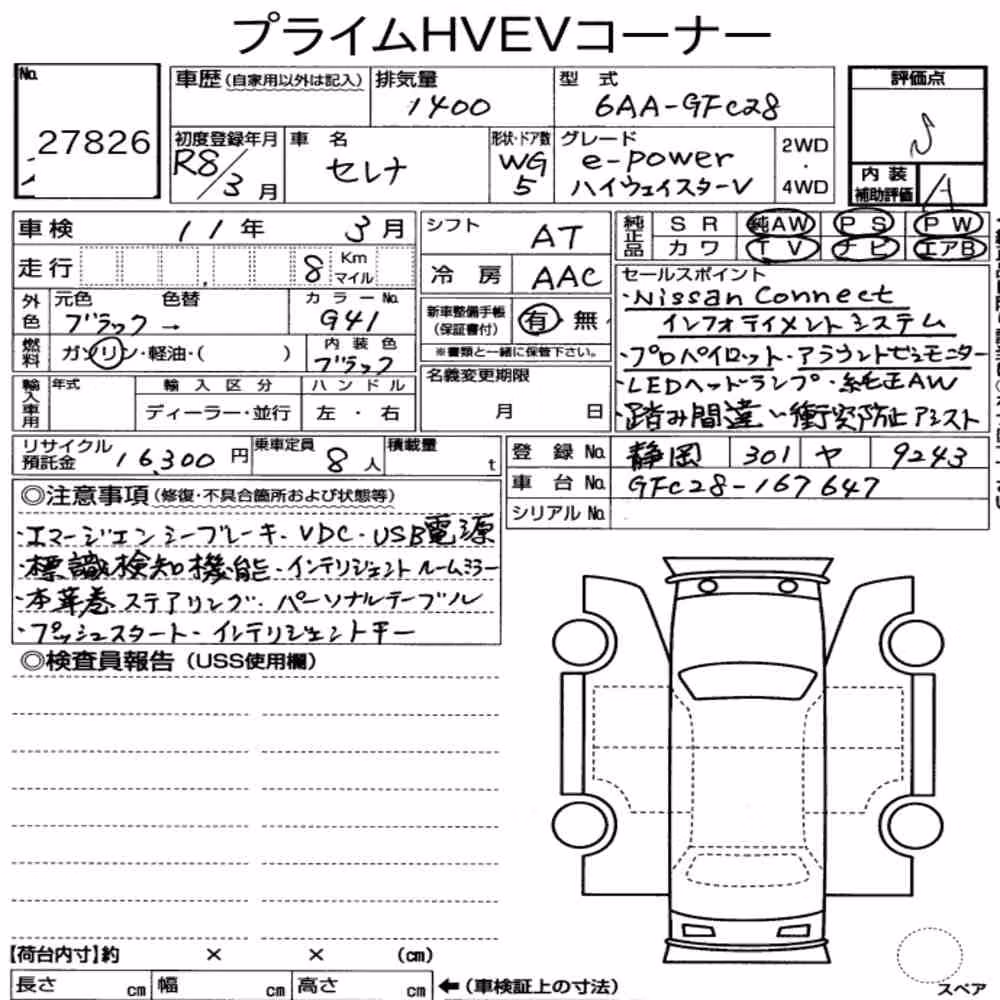 プライムHVEVコーナー
No. 27826
車歴(自家用以外は記入)
排気量 1400
型 式 6AA-GFC28
評価点 S
初度登録年月 R8/3月
車 名 セレナ
形状・ドア数 WG 5
グレード e-power ハイウェイスターV
2WD・4WD
内装補助評価 A
車検 11年 3月
シフト AT
純正品 SR 純AW PS PW
カワ TV ナビ エアB
走行 8 Km マイル
冷 房 AAC
セールスポイント
・Nissan Connect
インフォテイメントシステム
・プロパイロット・アラウンドビューモニター
・LEDヘッドランプ・純正AW
・踏み間違い衝突防止アシスト
外色 元色 ブラック→ 色替
カラーNo. G41
新車整備手帳(保証書付) 有 無
※書類と一緒に保管下さい。
燃料 ガソリン・軽油・( )
内装色 ブラック
名義変更期限 月 日
輸入車用 年式 輸入区分 ハンドル
ディーラー・並行 左・右
リサイクル預託金 16,300円
乗車定員 8人
積載量 t
登録No. 静岡 301 ヤ 9243
車台No. GFC28-167647
シリアルNo.
◎注意事項(修復・不具合箇所および状態等)
・エマージェンシーブレーキ・VDC・USB電源
・標識検知機能・インテリジェントルームミラー
・本革巻ステアリング・パーソナルテーブル
・プッシュスタート・インテリジェントキー
◎検査員報告(USS使用欄)
【荷台内寸】約 × × (cm)
長さ cm 幅 cm 高さ cm ←(車検証上の寸法)
スペア